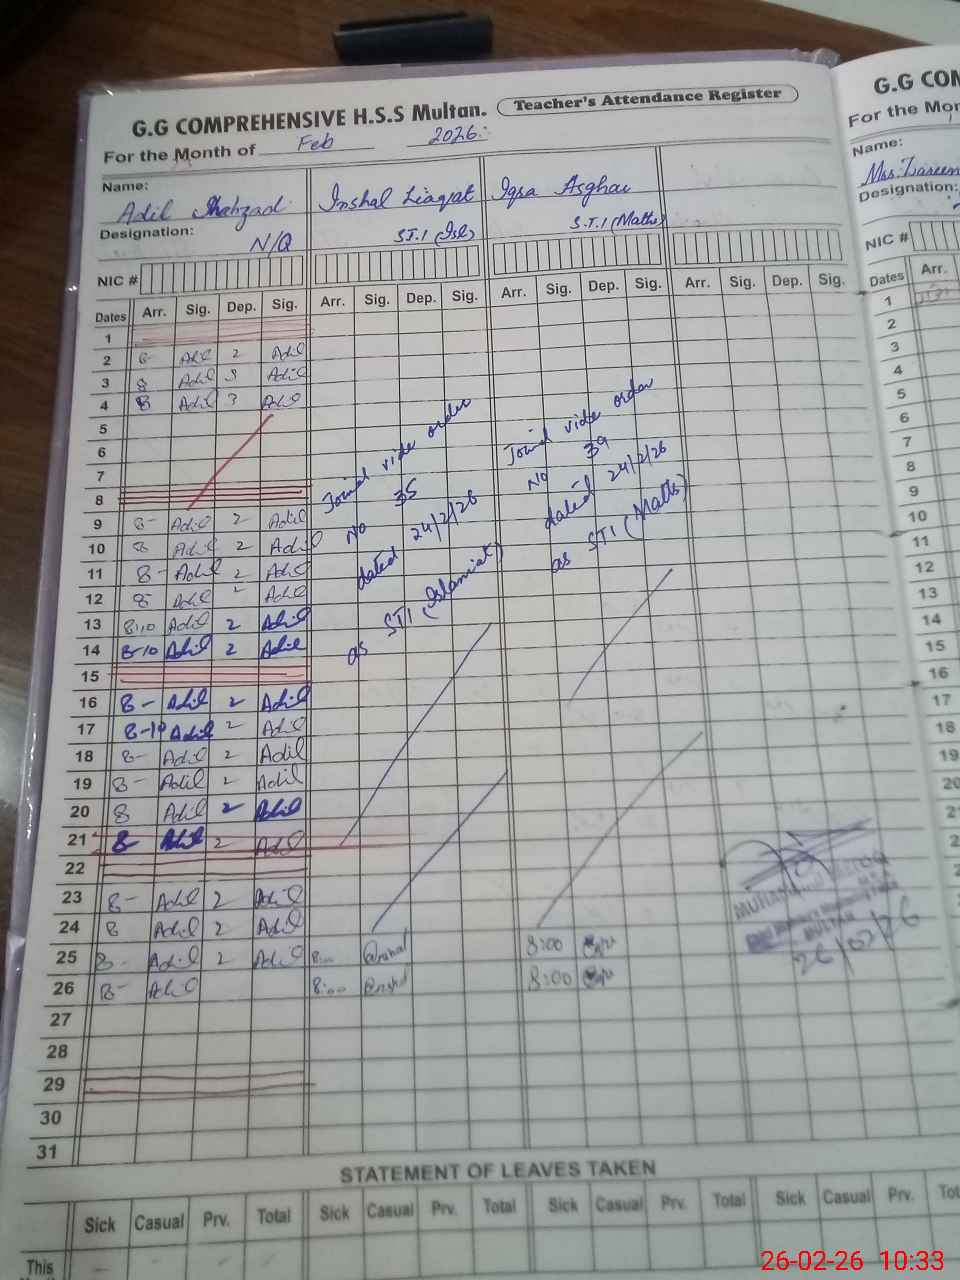 G.G COMPREHENSIVE H.S.S Multan. Teacher's Attendance Register
For the Month of Feb 2026
Name: Adil Shahzad Inshal Liaqat Iqra Asghar
Designation: N/Q S.T.I (Isl) S.T.I (Maths)
NIC #
Dates Arr. Sig. Dep. Sig. Arr. Sig. Dep. Sig. Arr. Sig. Dep. Sig. Arr. Sig. Dep. Sig.
1
2 8- Adil 2 Adil
3 8 Adil 3 Adil
4 8 Adil 3 Adil
5
6
7
8
9 8- Adil 2 Adil
10 8 Adil 2 Adil
11 8- Adil 2 Adil
12 8 Adil Adil
13 8:10 Adil 2 Adil
14 8-10 Adil 2 Adil
15
16 8- Adil 2 Adil
17 8-10 Adil 2 Adil
18 8- Adil 2 Adil
19 8- Adil 2 Adil
20 8 Adil 2 Adil
21 8- Adil 2 Adil
22
23 8- Adil 2 Adil
24 8 Adil 2 Adil
25 8- Adil 2 Adil 8:00 8:00
26 8- Adil 8:00 8:00
27
28
29
30
31
Joined vide order
No 35
dated 24/2/26
as STI (Islamiat)
Joined vide order
No 39
dated 24/2/26
as STI (Maths)
MULTAN
26/02/26
STATEMENT OF LEAVES TAKEN
Sick Casual Prv. Total Sick Casual Prv. Total Sick Casual Prv. Total Sick Casual Prv.
This
G.G COM
For the Mon
Name:
Mrs. Zareen
Designation:
NIC #
Dates Arr.
1
2
3
4
5
6
7
8
9
10
11
12
13
14
15
16
17
18
19
20
26-02-26 10:33